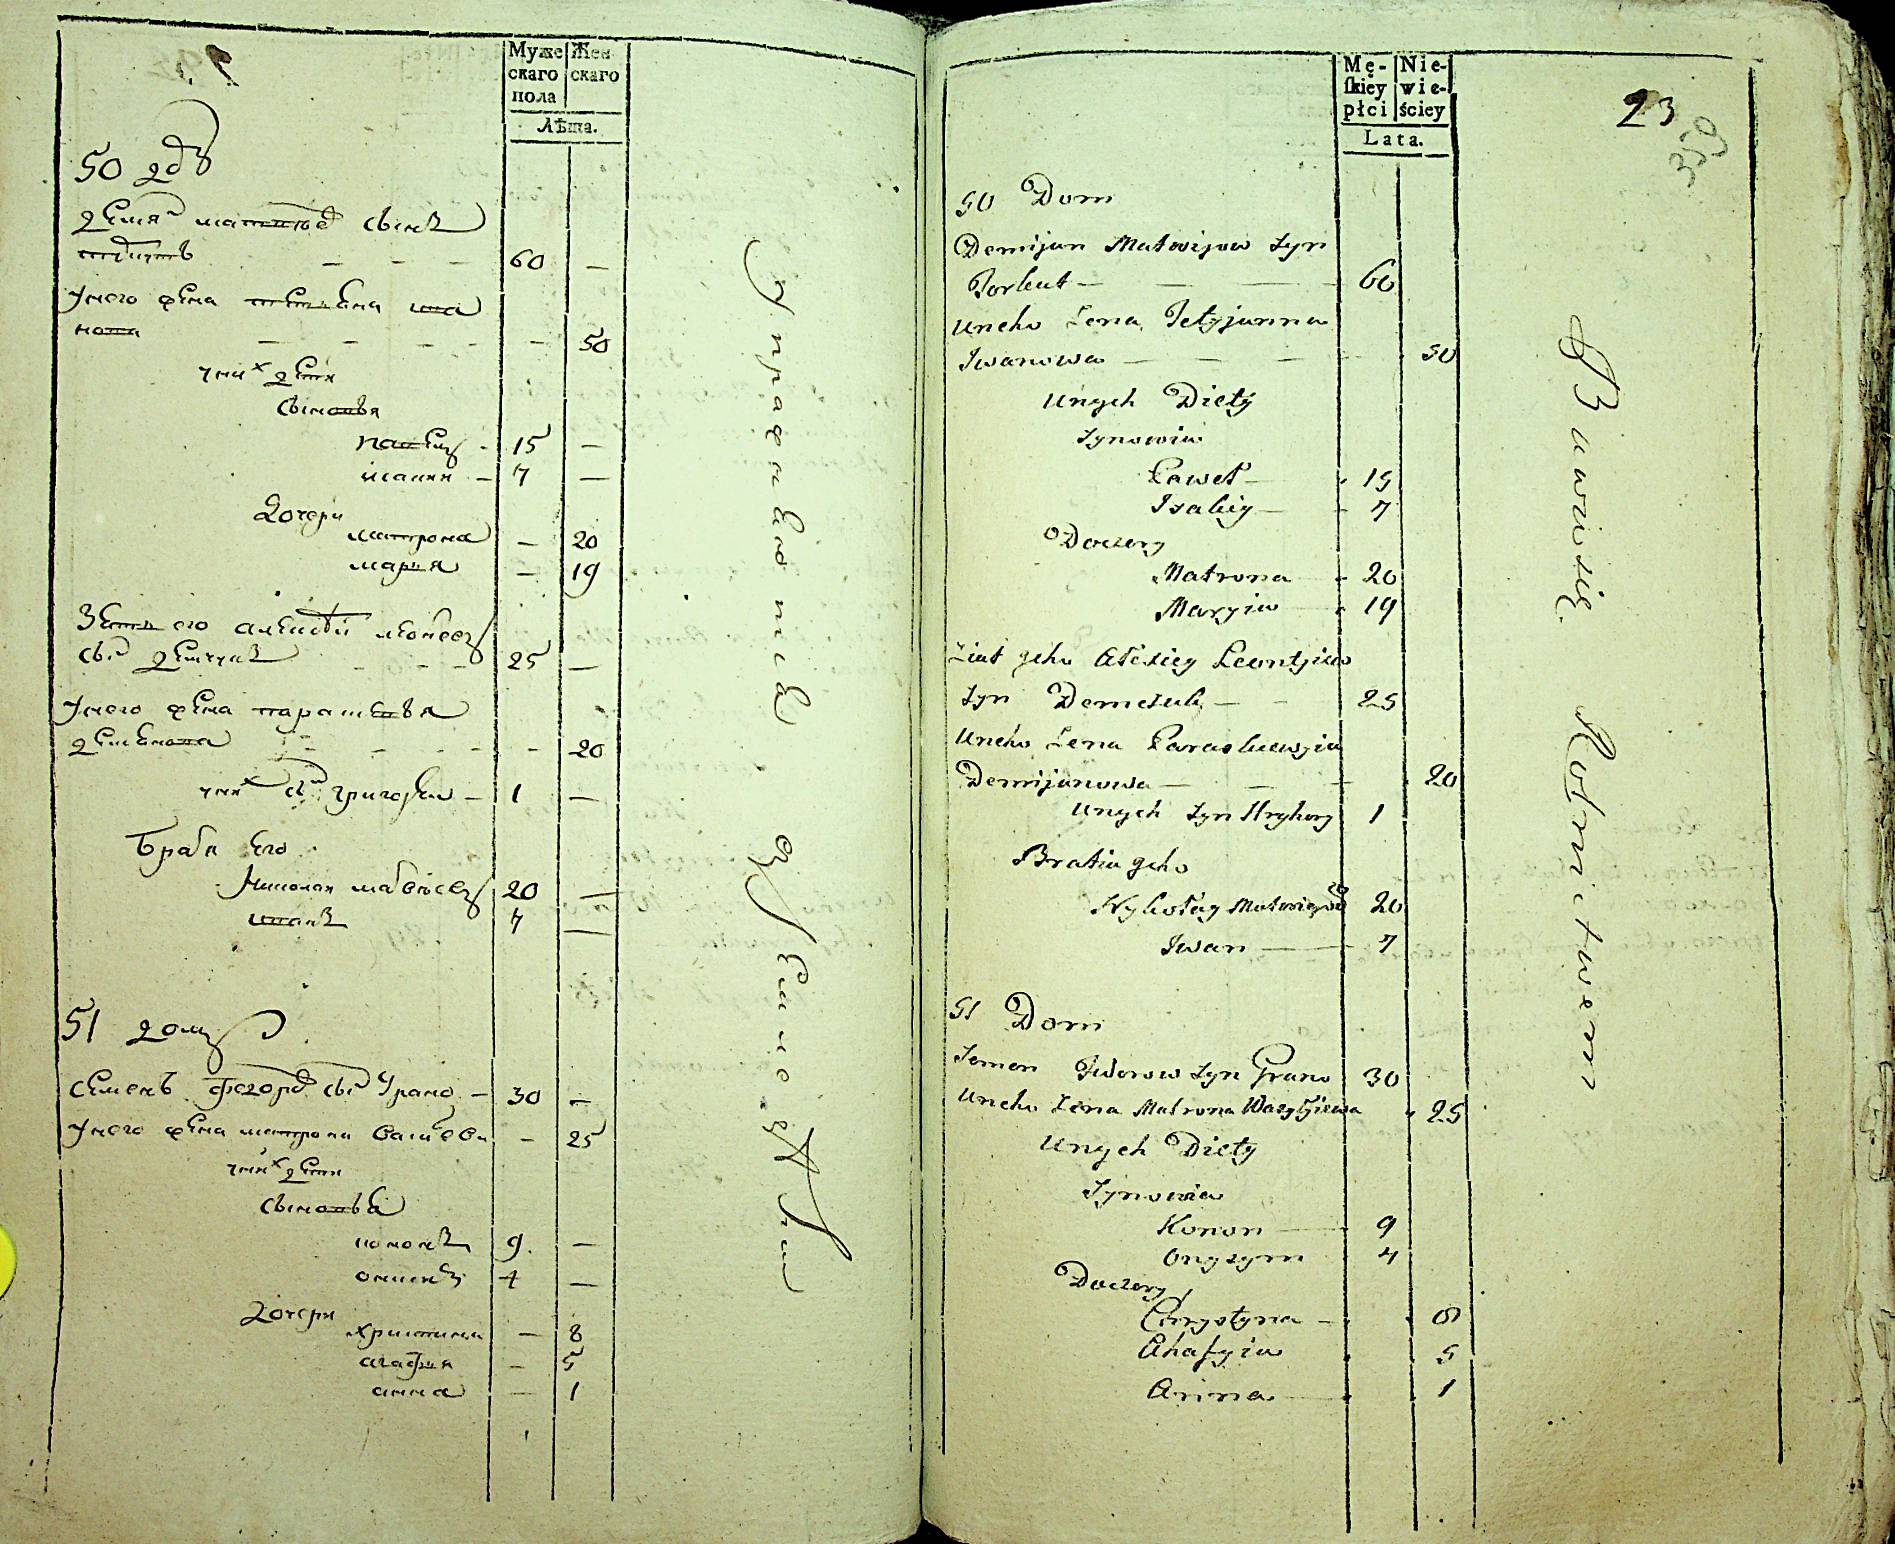 Муже
скаго
пола
Жен
скаго
Лѣта.
50 дб
демя матвѣев сынъ
60 —
у него жена татьяна ива
нова — 50
у них дети
сыновья
павелъ - 15 —
исакия - 7 —
Дочери
матрона — 20
мария — 19
Зять его алексѣй леонтьев
сын демчукъ 25 —
у него жена парасковья
демянова - 20
у них сын григорей — 1 —
Братья его
Николай матвѣевъ 20 —
иванъ 7 —
51 домъ
семенъ федоров сын Грано — 30 —
у него жена матрона василева - 25
у них дети
сыновья
кононъ 9 —
онисимъ 4 —
Дочери
христина — 8
агафия — 5
анна — 1
Упражняются
земледѣлием
Mę-
skiey
płci
Nie-
wie-
ściey
Lata.
23
359
50 Dom
Demijan Matwijow Syn
Torbut — 60
Uneho Żena Tetyjanna
Iwanowa — 50
Unych Diety
Synowia
Paweł — 15
Isakiy — 7
Doczery
Matrona - 20
Maryia - 19
Ziat jeho Ałexiey Leontjiew
Syn Demczuk — 25
Uneho Żena Paraskiewyia
Demijanowa — 20
Unych Syn Hryhory 1
Bratia jeho
Nykołay Matwiejow 20
Iwan — 7
51 Dom
Semen Fedorow Syn Grano 30
Uneho Żena Matrona Wasylijewa 25
Unych Diety
Synowia
Konon 9
Onysym 4
Doczery
Chrystyna — 8
Ahafyia 5
Anna — 1
Bawi się Rolnictwem